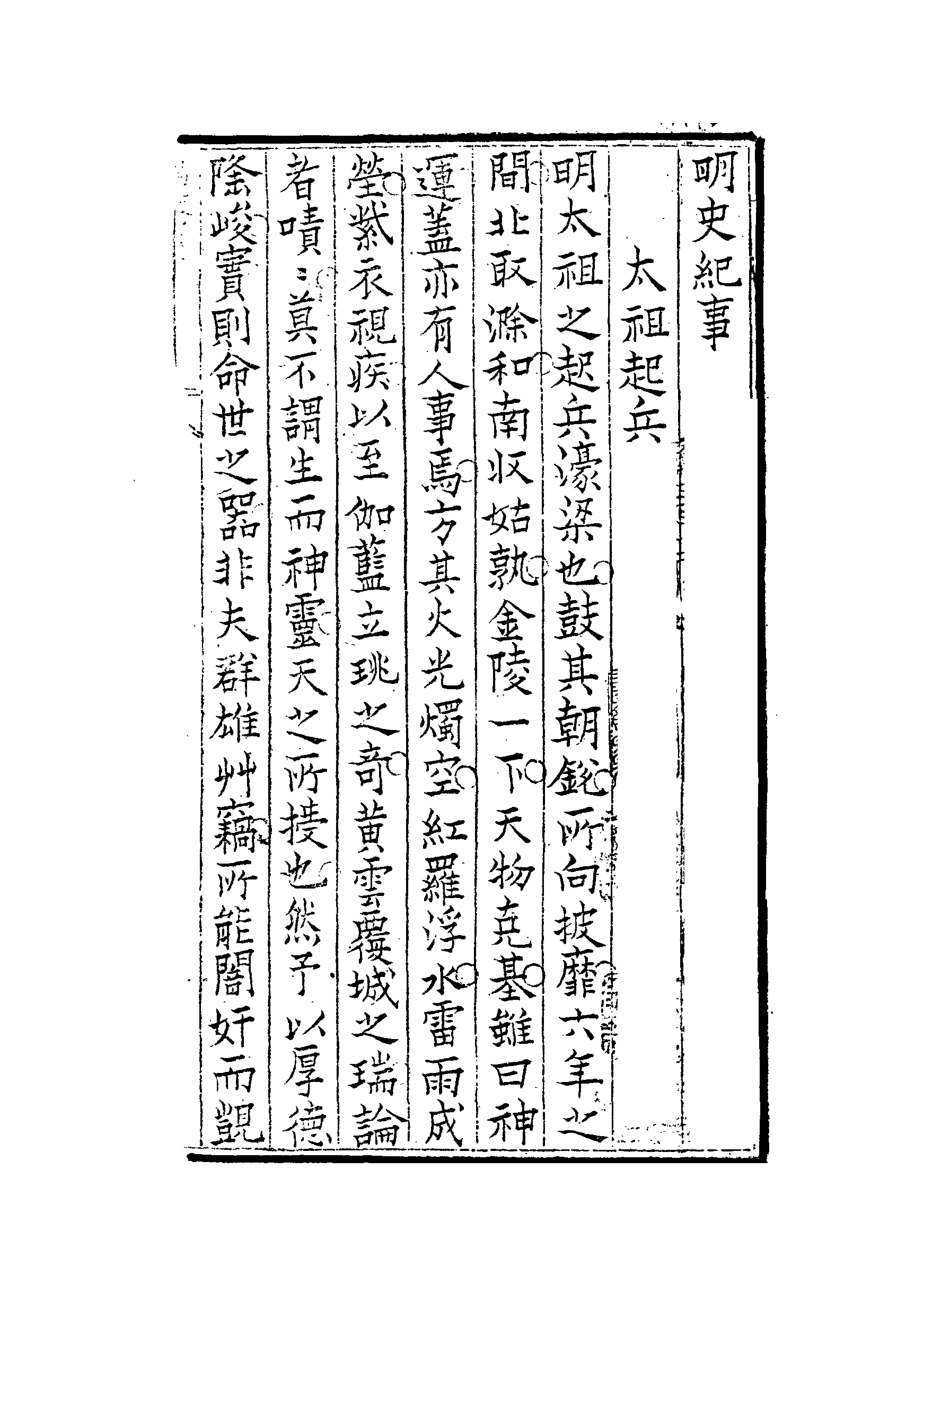 明史紀事
太祖起兵
明太祖之起兵濠梁也鼓其朝銳所向披靡六年之
間北取滁和南收姑孰金陵一下天物克基雖曰神
運蓋亦有人事焉方其火光燭空紅羅浮水雷雨成
瑩紫衣視疾以至伽藍立珧之奇黃雲覆城之瑞論
者嘖〻莫不謂生而神靈天之所授也然予以厚德
隆峻實則命世之器非夫群雄艸竊所能闇奸而覬